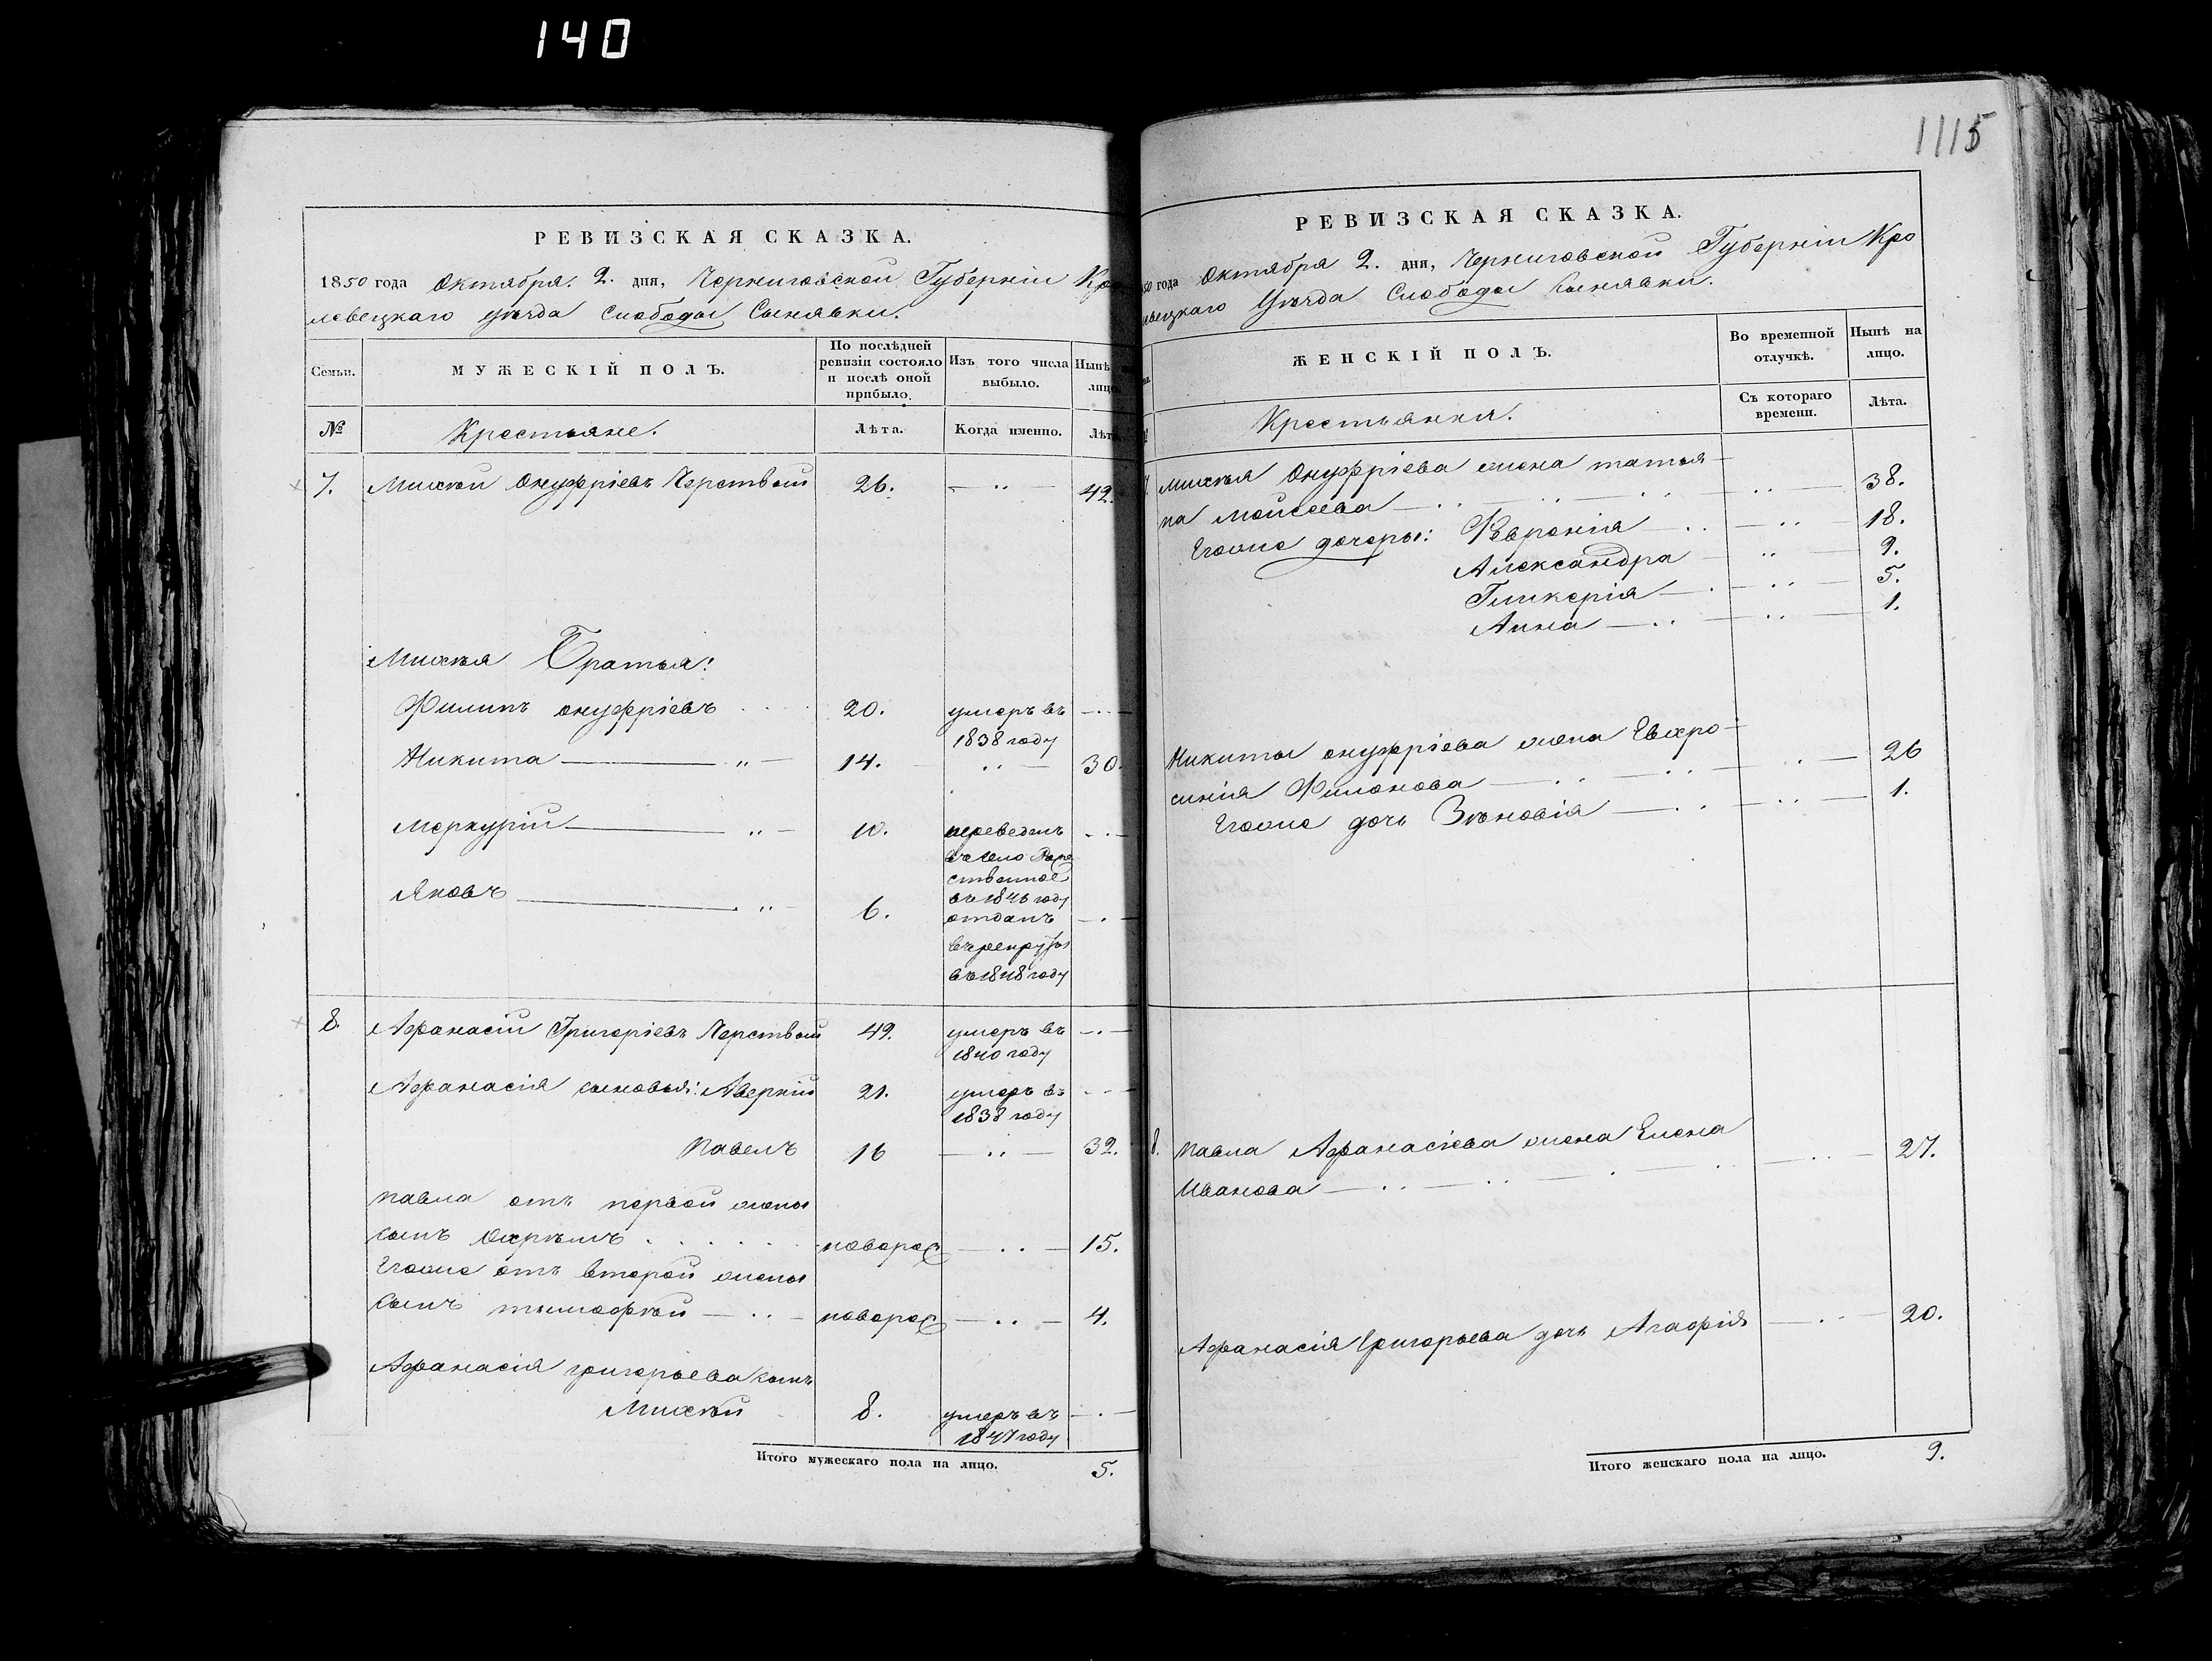 140
РЕВИЗСКАЯ СКАЗКА.
1850 года Октября 2. дня, Черниговской Губерніи Кро
левецкаго уѣзда Слободы Сынявки.
Семьи.
МУЖЕСКІЙ ПОЛЪ.
По послѣдней
ревизіи состояло
и послѣ оной
прибыло.
Изъ того числа
выбыло.
Нынѣ
лицо
№
Крестьяне.
Лѣта.
Когда именно.
Лѣт
7. Михѣй Онуфріевъ Черствый 26. 42.
Михѣя Братья:
Филипъ онуфріевъ 20. умеръ въ
1838 году
Никита — „ — 14. 30.
Меркурій — „ — 10. переведенъ
въ село Роже
ственное
въ 1846 году
Яковъ — „ — 6. отданъ
въ рекруты
въ 1848 году
8. Афанасій Григоріевъ Черствый 49. умеръ въ
1840 году
Афанасія сыновья: Аверкій 21. умеръ въ
1838 году
Павелъ 16 32.
Павла отъ первой жены
сынъ Охрѣмъ новорож 15.
Егоже отъ второй жены
сынъ тымофѣй новорож 4.
Афанасія григорьева сынъ
Михѣй 8. умеръ въ
1847 году
Итого мужескаго пола на лицо. 5.
1115
РЕВИЗСКАЯ СКАЗКА.
50 года Октября 2. дня, Черниговской Губерніи Кро
левецкаго Уѣзда Слободы Сынявки.
ЖЕНСКІЙ ПОЛЪ.
Во временной
отлучкѣ.
Нынѣ на
лицо.
Крестьянки.
Съ котораго
времени.
Лѣта.
7. Михѣя Онуфріева жена татья-
на Мойсеева 38.
Егоже дочеры: Февронія 18.
Александра 9.
Гликерія 5.
Анна 1.
Никиты онуфріева жена Евхро-
синія Филонова 26
Егоже дочь Зѣновія 1.
8. Павла Афанасіева жена Елена
Иванова 27.
Афанасія Григорьева дочь Агафія 20.
Итого женскаго пола на лицо. 9.